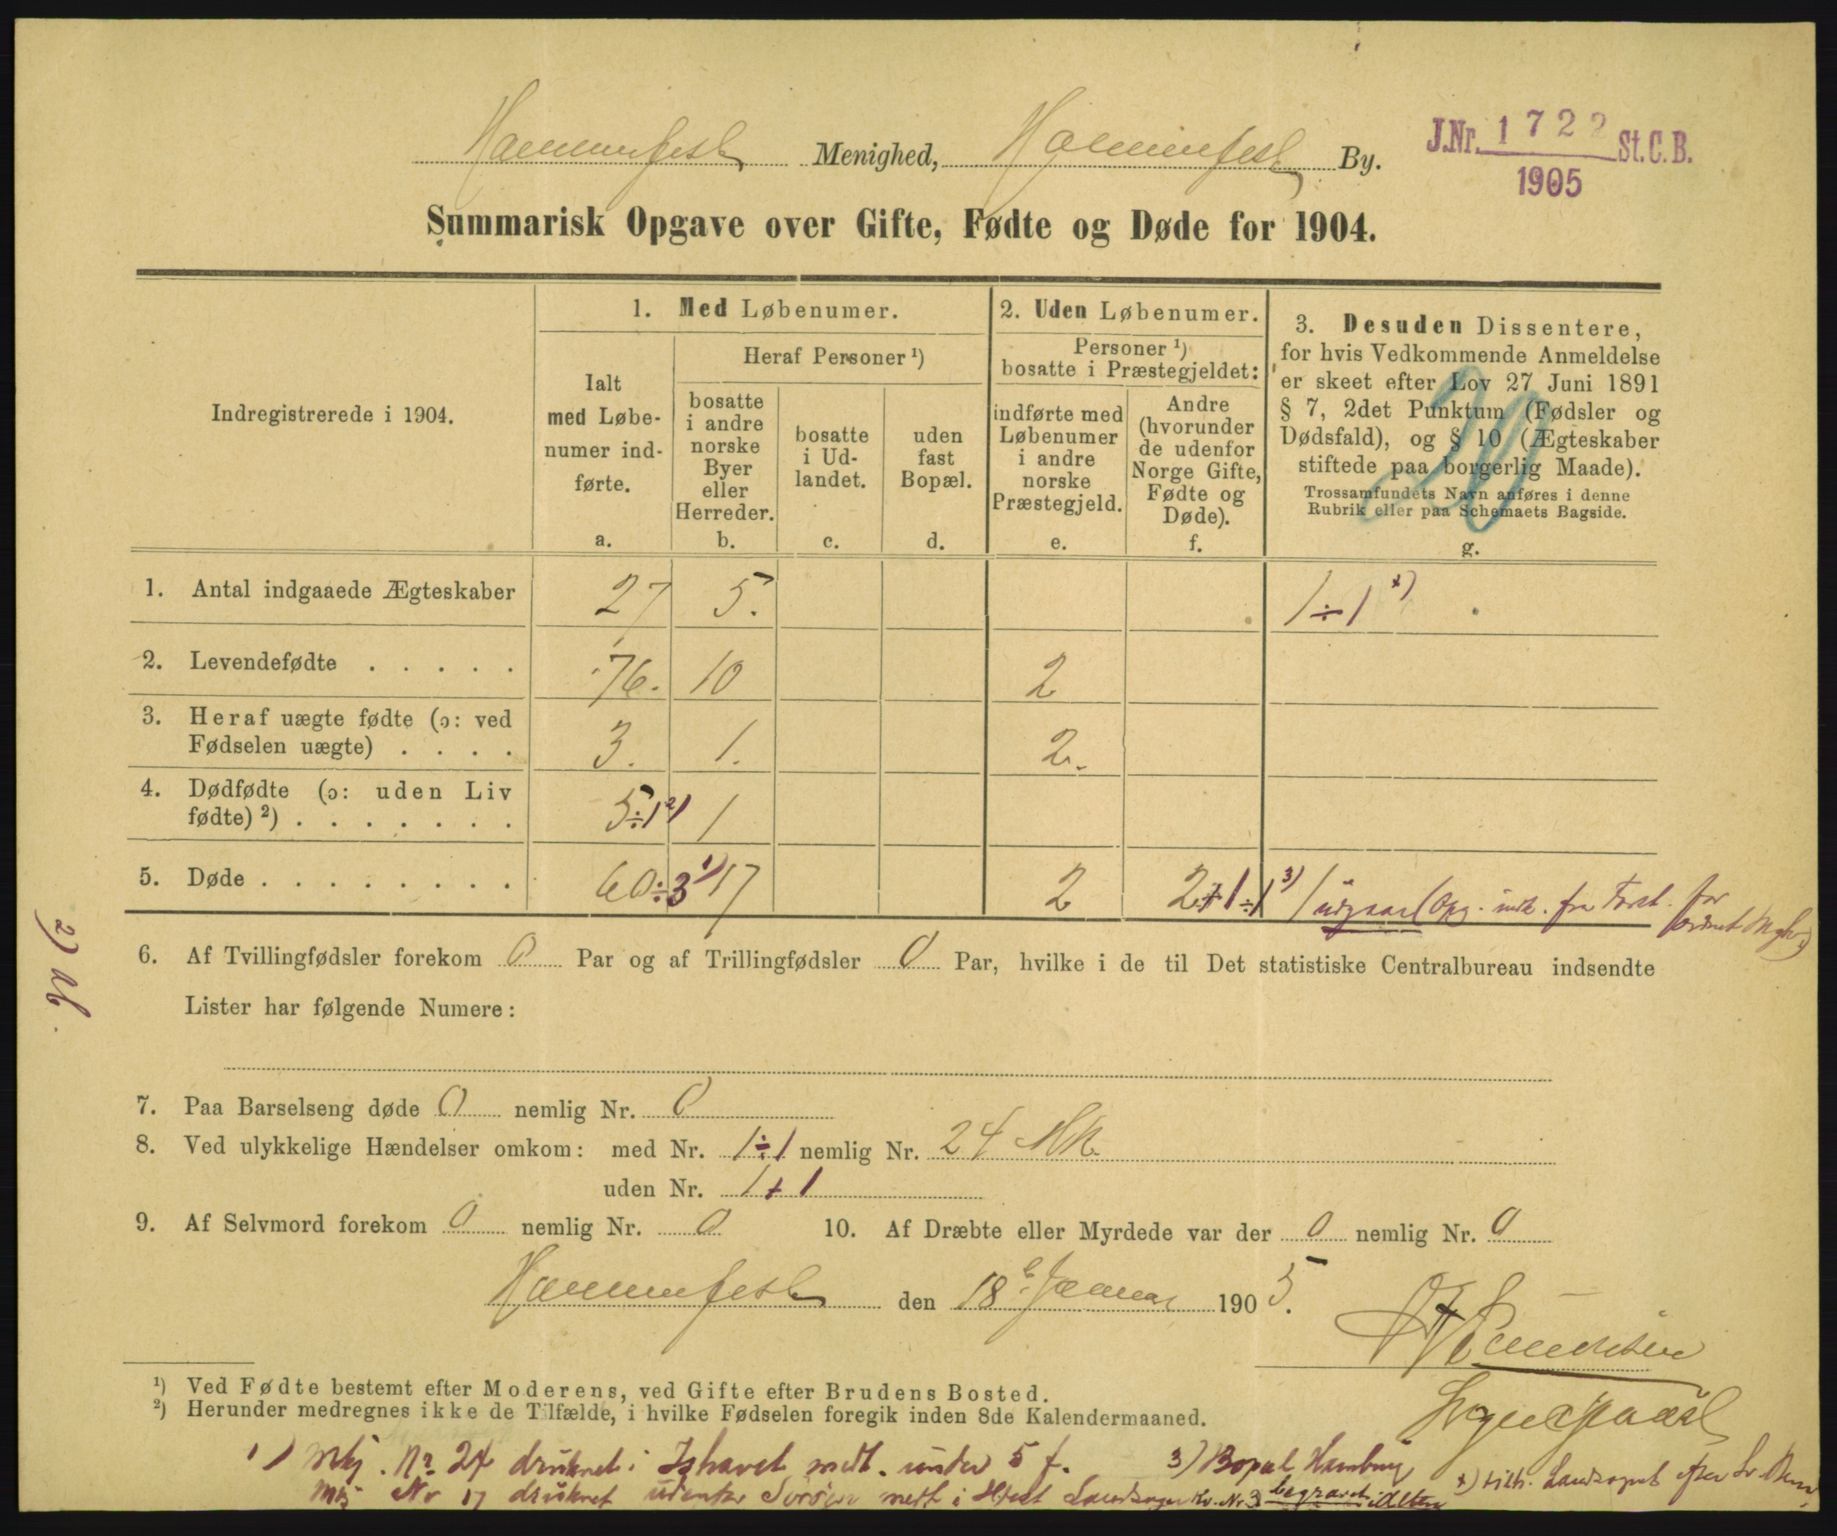 Hammerfest Menighed, Hammerfest By.
J.Nr. 1722 St.C.B.
1905
Summarisk Opgave over Gifte, Fødte og Døde for 1904.
Indregistrerede i 1904.
1. Med Løbenumer.
Ialt
med Løbe-
numer ind-
førte.
a.
Heraf Personer ¹)
bosatte
i andre
norske
Byer
eller
Herreder.
b.
bosatte
i Ud-
landet.
c.
uden
fast
Bopæl.
d.
2. Uden Løbenumer.
Personer ¹)
bosatte i Præstegjeldet:
indførte med
Løbenumer
i andre
norske
Præstegjeld.
e.
Andre
(hvorunder
de udenfor
Norge Gifte,
Fødte og
Døde).
f.
3. Desuden Dissentere,
for hvis Vedkommende Anmeldelse
er skeet efter Lov 27 Juni 1891
§ 7, 2det Punktum (Fødsler og
Dødsfald), og § 10 (Ægteskaber
stiftede paa borgerlig Maade).
Trossamfundets Navn anføres i denne
Rubrik eller paa Schemaets Bagside.
g.
1. Antal indgaaede Ægteskaber 27 5. 1÷1 x)
2. Levendefødte . . . . . 76. 10 2
3. Heraf uægte fødte (ɔ: ved
Fødselen uægte) . . . . 3. 1. 2.
4. Dødfødte (ɔ: uden Liv
fødte) ²) . . . . . . . 5÷1 2) 1
5. Døde . . . . . . . . 60÷3 1) 17 2 2+1÷1 3) 1 udgaar (Opg. . fra . for
2) Ub.
6. Af Tvillingfødsler forekom 0 Par og af Trillingfødsler 0 Par, hvilke i de til Det statistiske Centralbureau indsendte
Lister har følgende Numere:
7. Paa Barselseng døde 0 nemlig Nr. 0
8. Ved ulykkelige Hændelser omkom: med Nr. 1÷1 nemlig Nr. 24 Mk.
uden Nr. 1+1
9. Af Selvmord forekom 0 nemlig Nr. 0 10. Af Dræbte eller Myrdede var der 0 nemlig Nr. 0
Hammerfest den 18 Januar 1905.
Sognepræst
¹) Ved Fødte bestemt efter Moderens, ved Gifte efter Brudens Bosted.
²) Herunder medregnes ikke de Tilfælde, i hvilke Fødselen foregik inden 8de Kalendermaaned.
1) Mkj. Nr 24 druknet i Ishavet medt. under 5 f. 3) Bopæl Hamburg
Mkj Nr 17 druknet udenfor Sørøen medt i Hfest Landsogn Kv. Nr. 3 begravet i Alten x) tilh. Landsognet efter